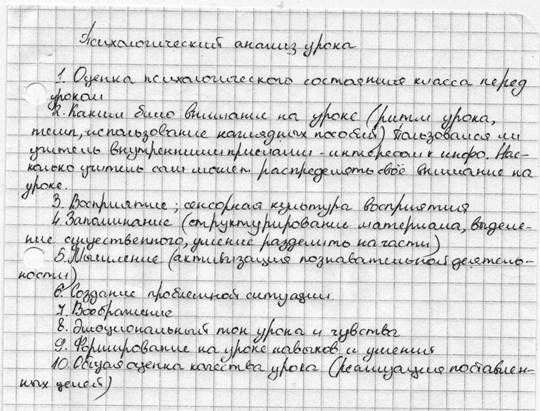 Психологический анализ урока
1. Оценка психологического состояния класса перед
уроком
2. Каким было внимание на уроке (ритм урока,
темп, использование наглядных пособий) Пользовался ли
учитель внутренними приемами - интересом к инфо. Нас-
колько учитель сам может распределять своё внимание на
уроке.
3. Восприятие; сенсорная культура восприятия
4. Запоминание (структурирование материала, выделе-
ние существенного, умение разделить на части)
5. Мышление (активизация познавательной деятель-
ности)
6. Создание проблемной ситуации
7. Воображение
8. Эмоциональный тон урока и чувства
9. Формирование на уроке навыков и умения
10. Общая оценка качества урока (реализация поставлен-
ных целей)